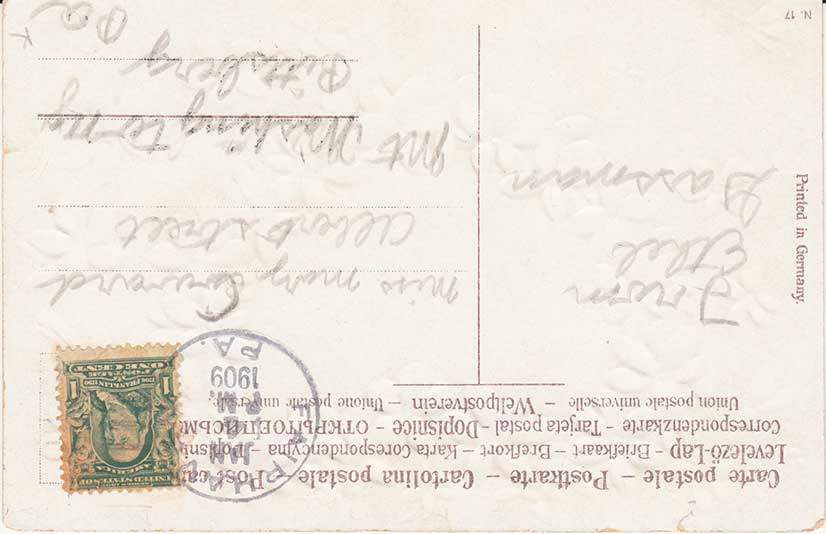 Carte postale – Postkarte – Cartolina postale – Post car
Levelező-Lap – Briefkaart – Brefkort – Karta Corespondencyjna – Dopisn
Correspondenzkarte – Tarjeta postal – Dopisnice – ОТКРЫТОЕ ПИСЬМ
Union postale universelle – Weltpostverein – Unione postale universale
UNITED STATES OF
AMERICA
FRANKLIN
POSTAGE
1 ONE CENT 1
JAN
PM
1909
PA.
From
Ethel
Gassman
Miss mary
Albert street
Mt Washington
Pittsberg Pa
Printed in Germany.
N. 17